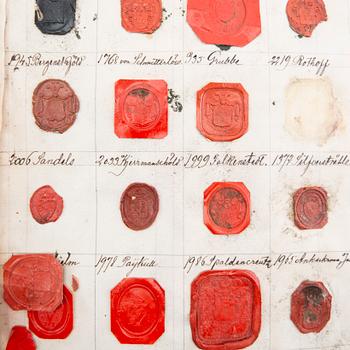 1943 Bergenskjöld 1768 von Schmitterlöw 935 Grubbe 2219 Rothoff
2006 Sandels 2033 Hjermansköld 1999 Falkenstedt. 1377 Gilfenstråhle
1978 Paykull 1986 Spaldencreutz 1965 Ankarkrona